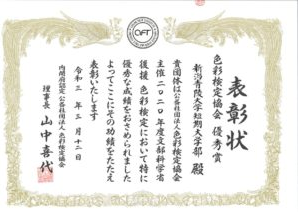 AFT
表彰状
色彩検定協会 優秀賞
新潟青陵大学短期大学部 殿
貴団体は公益社団法人色彩検定協会
主催二〇二〇年度文部科学省
後援 色彩検定において特に
優秀な成績をおさめられました
よってここにその功績をたたえ
表彰いたします
令和三年三月十二日
内閣府認定 公益社団法人 色彩検定協会
理事長 山中喜代